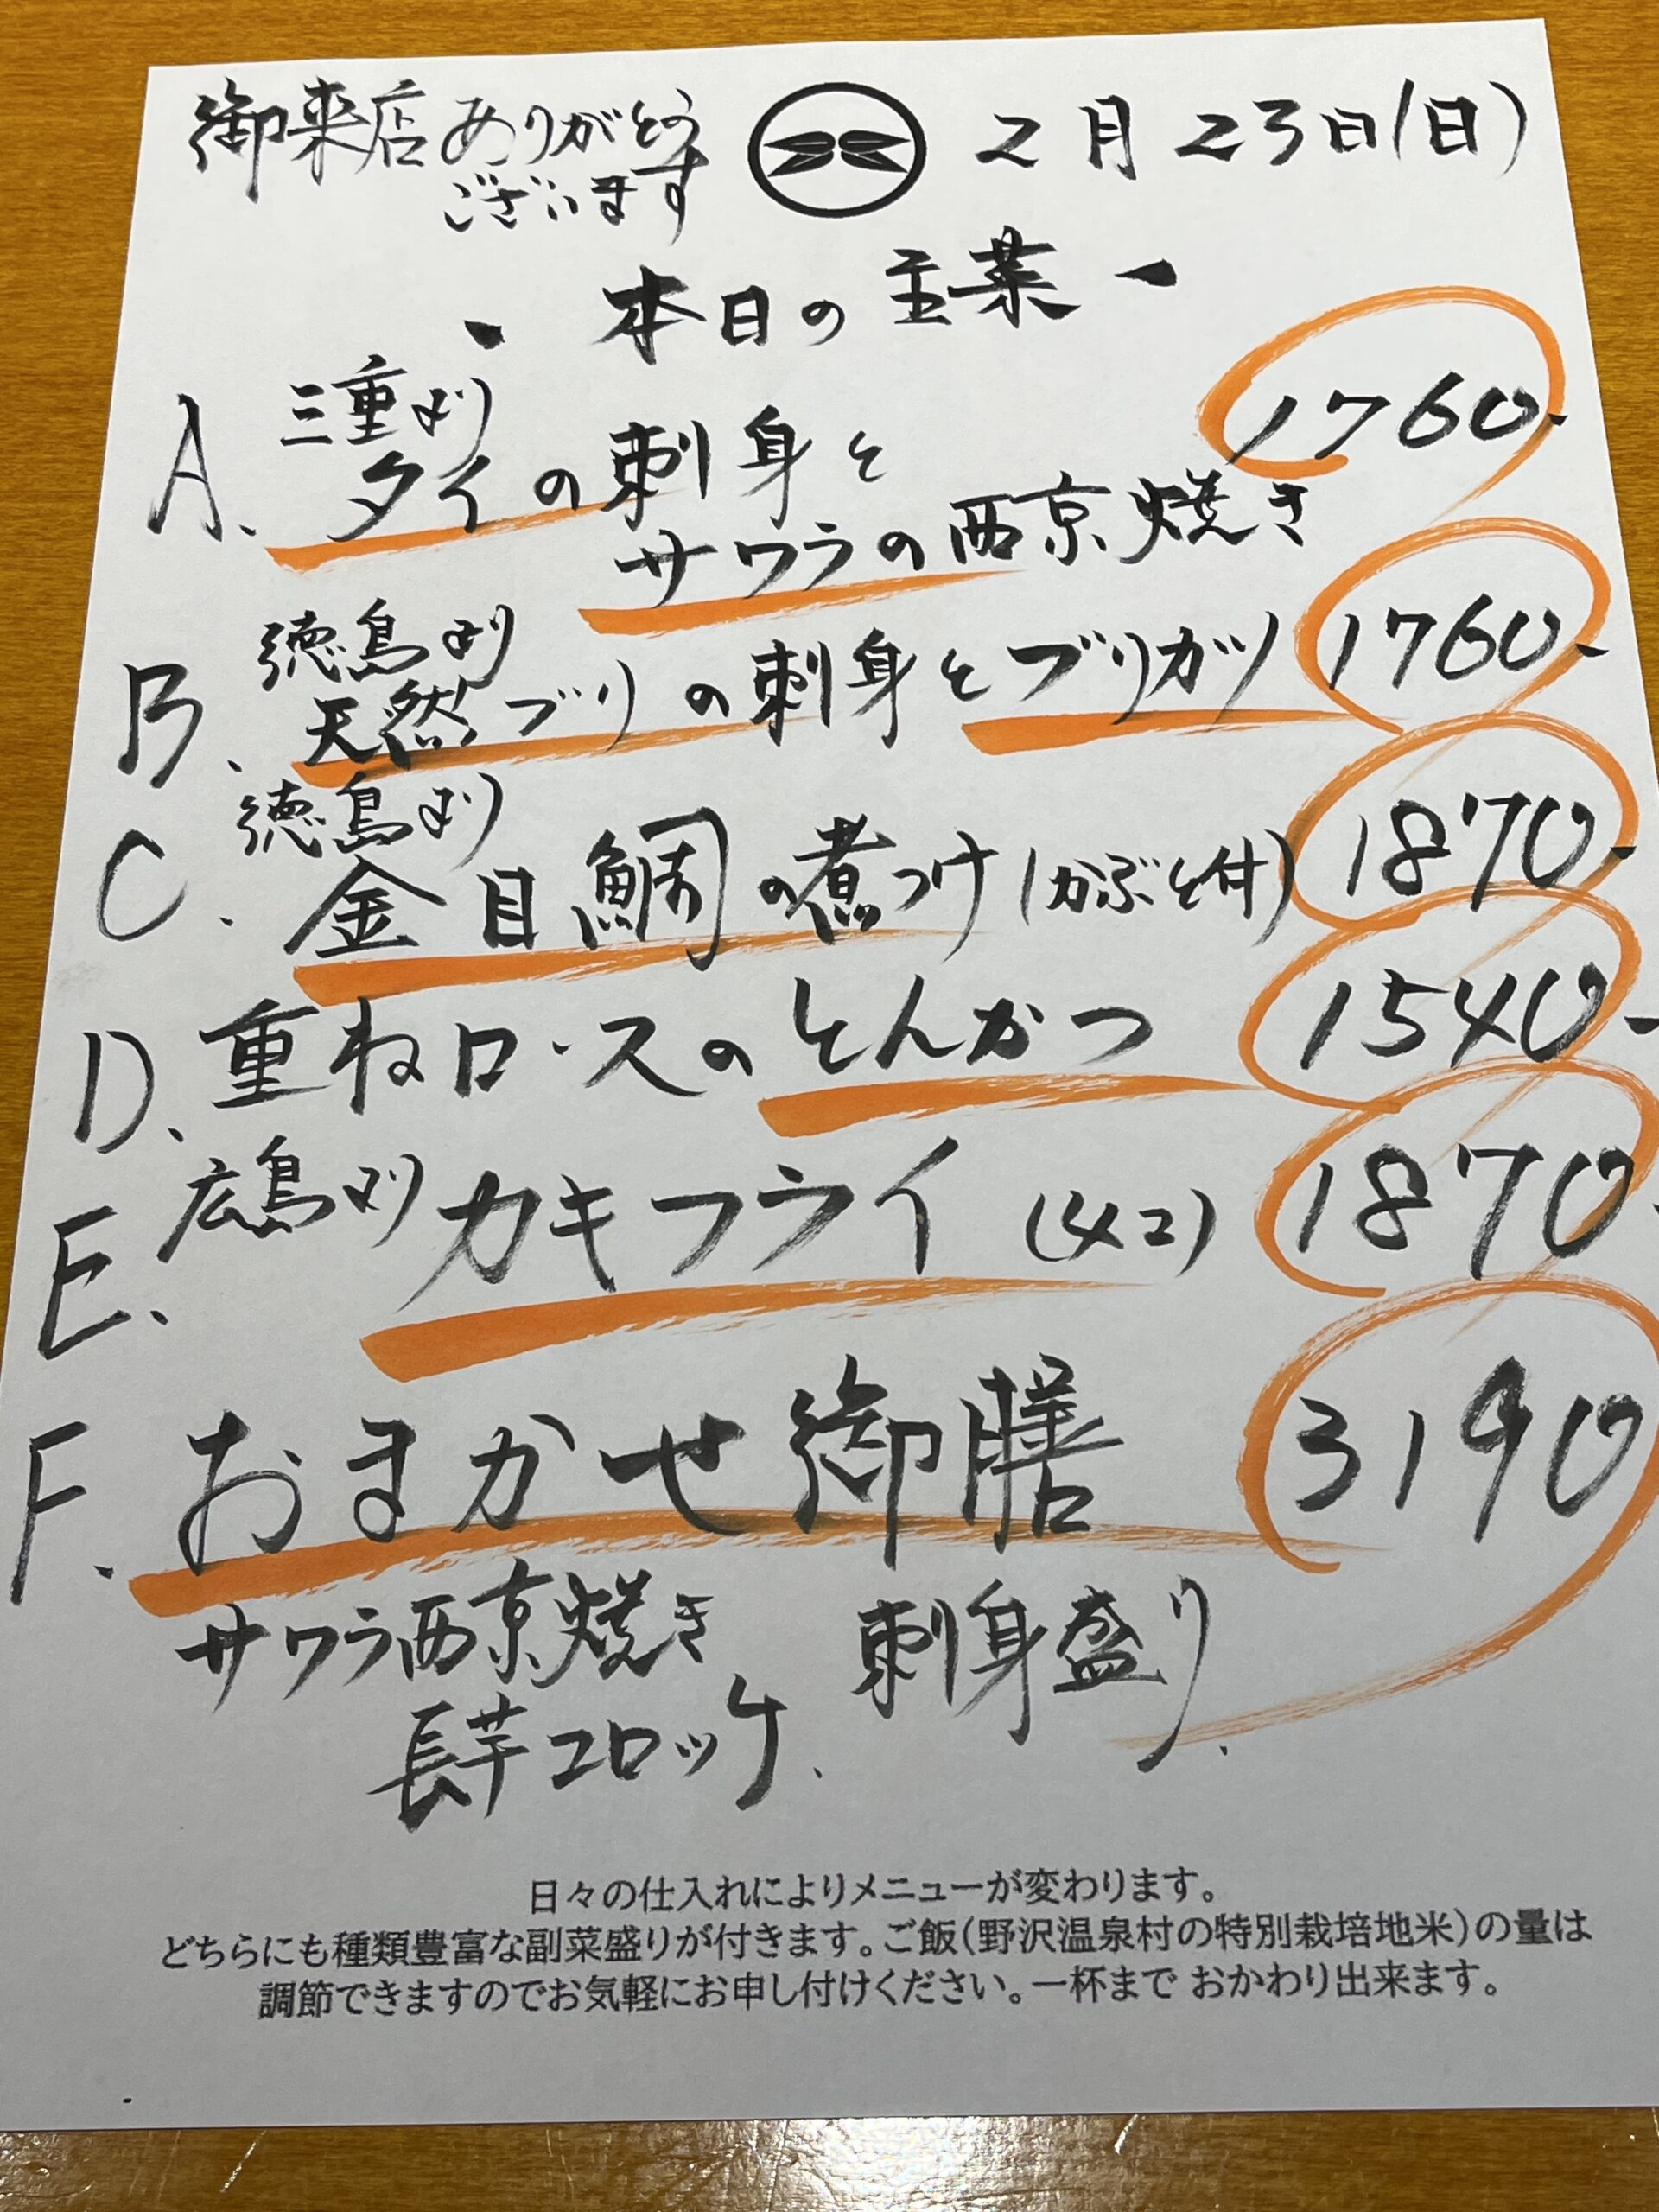 御来店ありがとう
ございます
2月23日(日)
本日の主菜
A. 三重より
タイの刺身と
サワラの西京焼き
1760-
B. 徳島より
天然ブリの刺身とブリカツ 1760-
C. 徳島より
金目鯛の煮つけ(かぶと付) 1870-
D. 重ねロースのとんかつ 1540-
E. 広島より カキフライ (4コ) 1870-
F. おまかせ御膳 3190
サワラ西京焼き 刺身盛り、
長芋コロッケ、
日々の仕入れによりメニューが変わります。
どちらにも種類豊富な副菜盛りが付きます。ご飯(野沢温泉村の特別栽培地米)の量は
調節できますのでお気軽にお申し付けください。一杯まで おかわり出来ます。